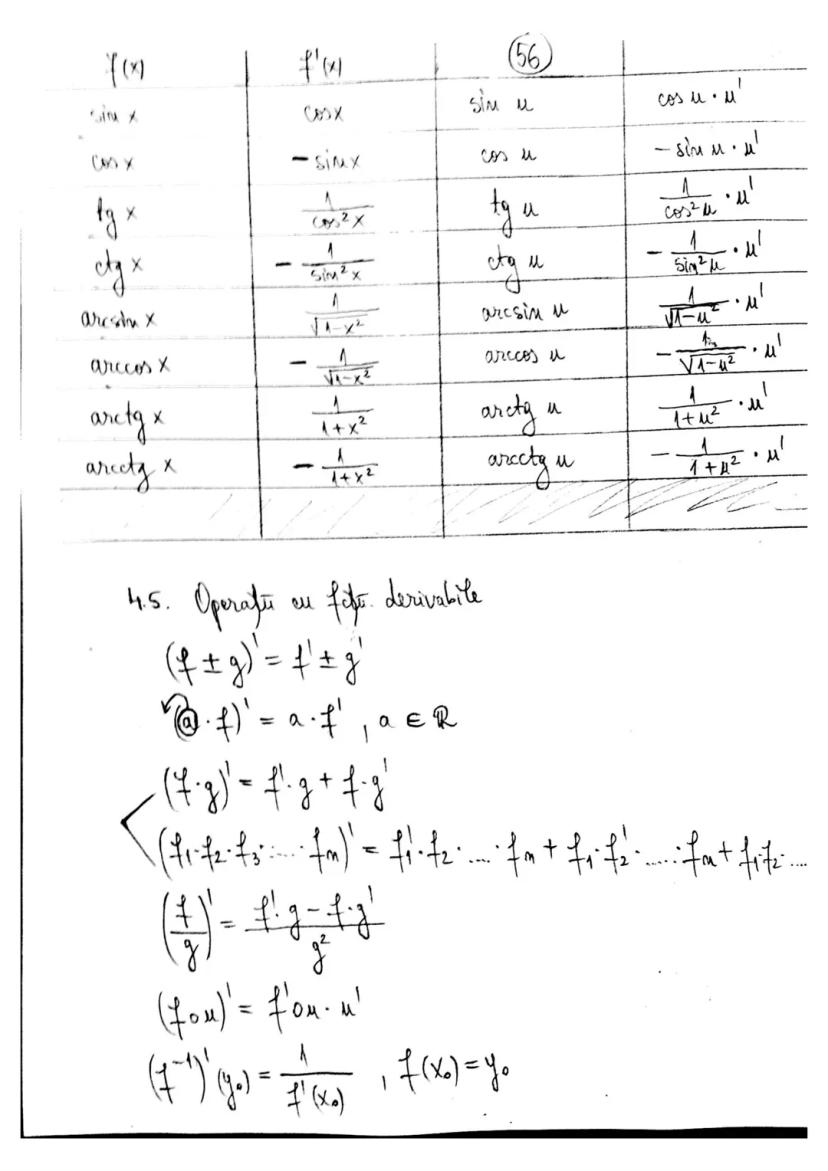 f(x) f'(x) (56)
sin x cos x sin u cos u · u'
cos x - sin x cos u - sin u · u'
tg x 1/cos² x tg u 1/cos² u · u'
ctg x - 1/sin² x ctg u - 1/sin² u · u'
arcsin x 1/√(1-x²) arcsin u 1/√(1-u²) · u'
arccos x - 1/√(1-x²) arccos u - 1/√(1-u²) · u'
arctg x 1/(1+x²) arctg u 1/(1+u²) · u'
arcctg x - 1/(1+x²) arcctg u - 1/(1+u²) · u'
4.5. Operații cu fcții. derivabile
(f ± g)' = f' ± g'
(a · f)' = a · f' , a ∈ ℝ
(f · g)' = f' · g + f · g'
(f₁ · f₂ · f₃ · .... · fₙ)' = f₁' · f₂ · .... · fₙ + f₁ · f₂' · ..... · fₙ + f₁ · f₂ · ....
(f/g)' = (f' · g - f · g')/g²
(f o u)' = f' o u · u'
(f⁻¹)' (y₀) = 1/f'(x₀) , f(x₀) = y₀